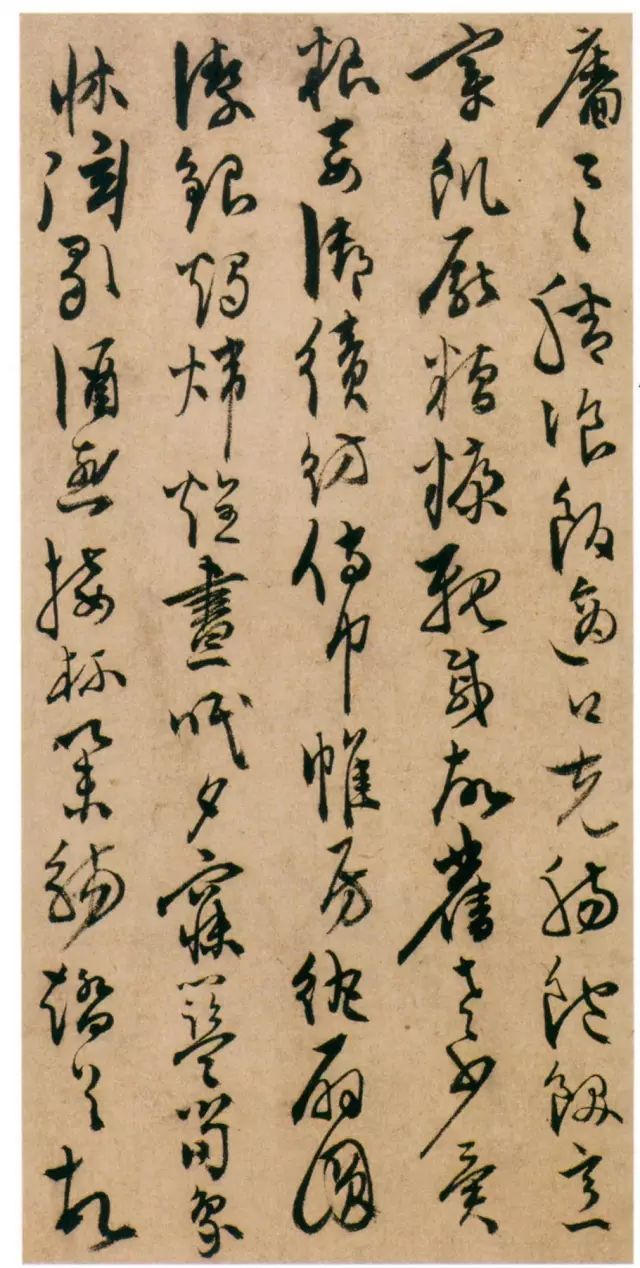 牆具膳飡飯適口充腸飽飫烹
宰飢厭糟糠親戚故舊老少異
糧妾御績紡侍巾帷房紈扇圓
潔銀燭煒煌晝眠夕寐藍筍象
牀弦歌酒讌接杯舉觴矯手頓